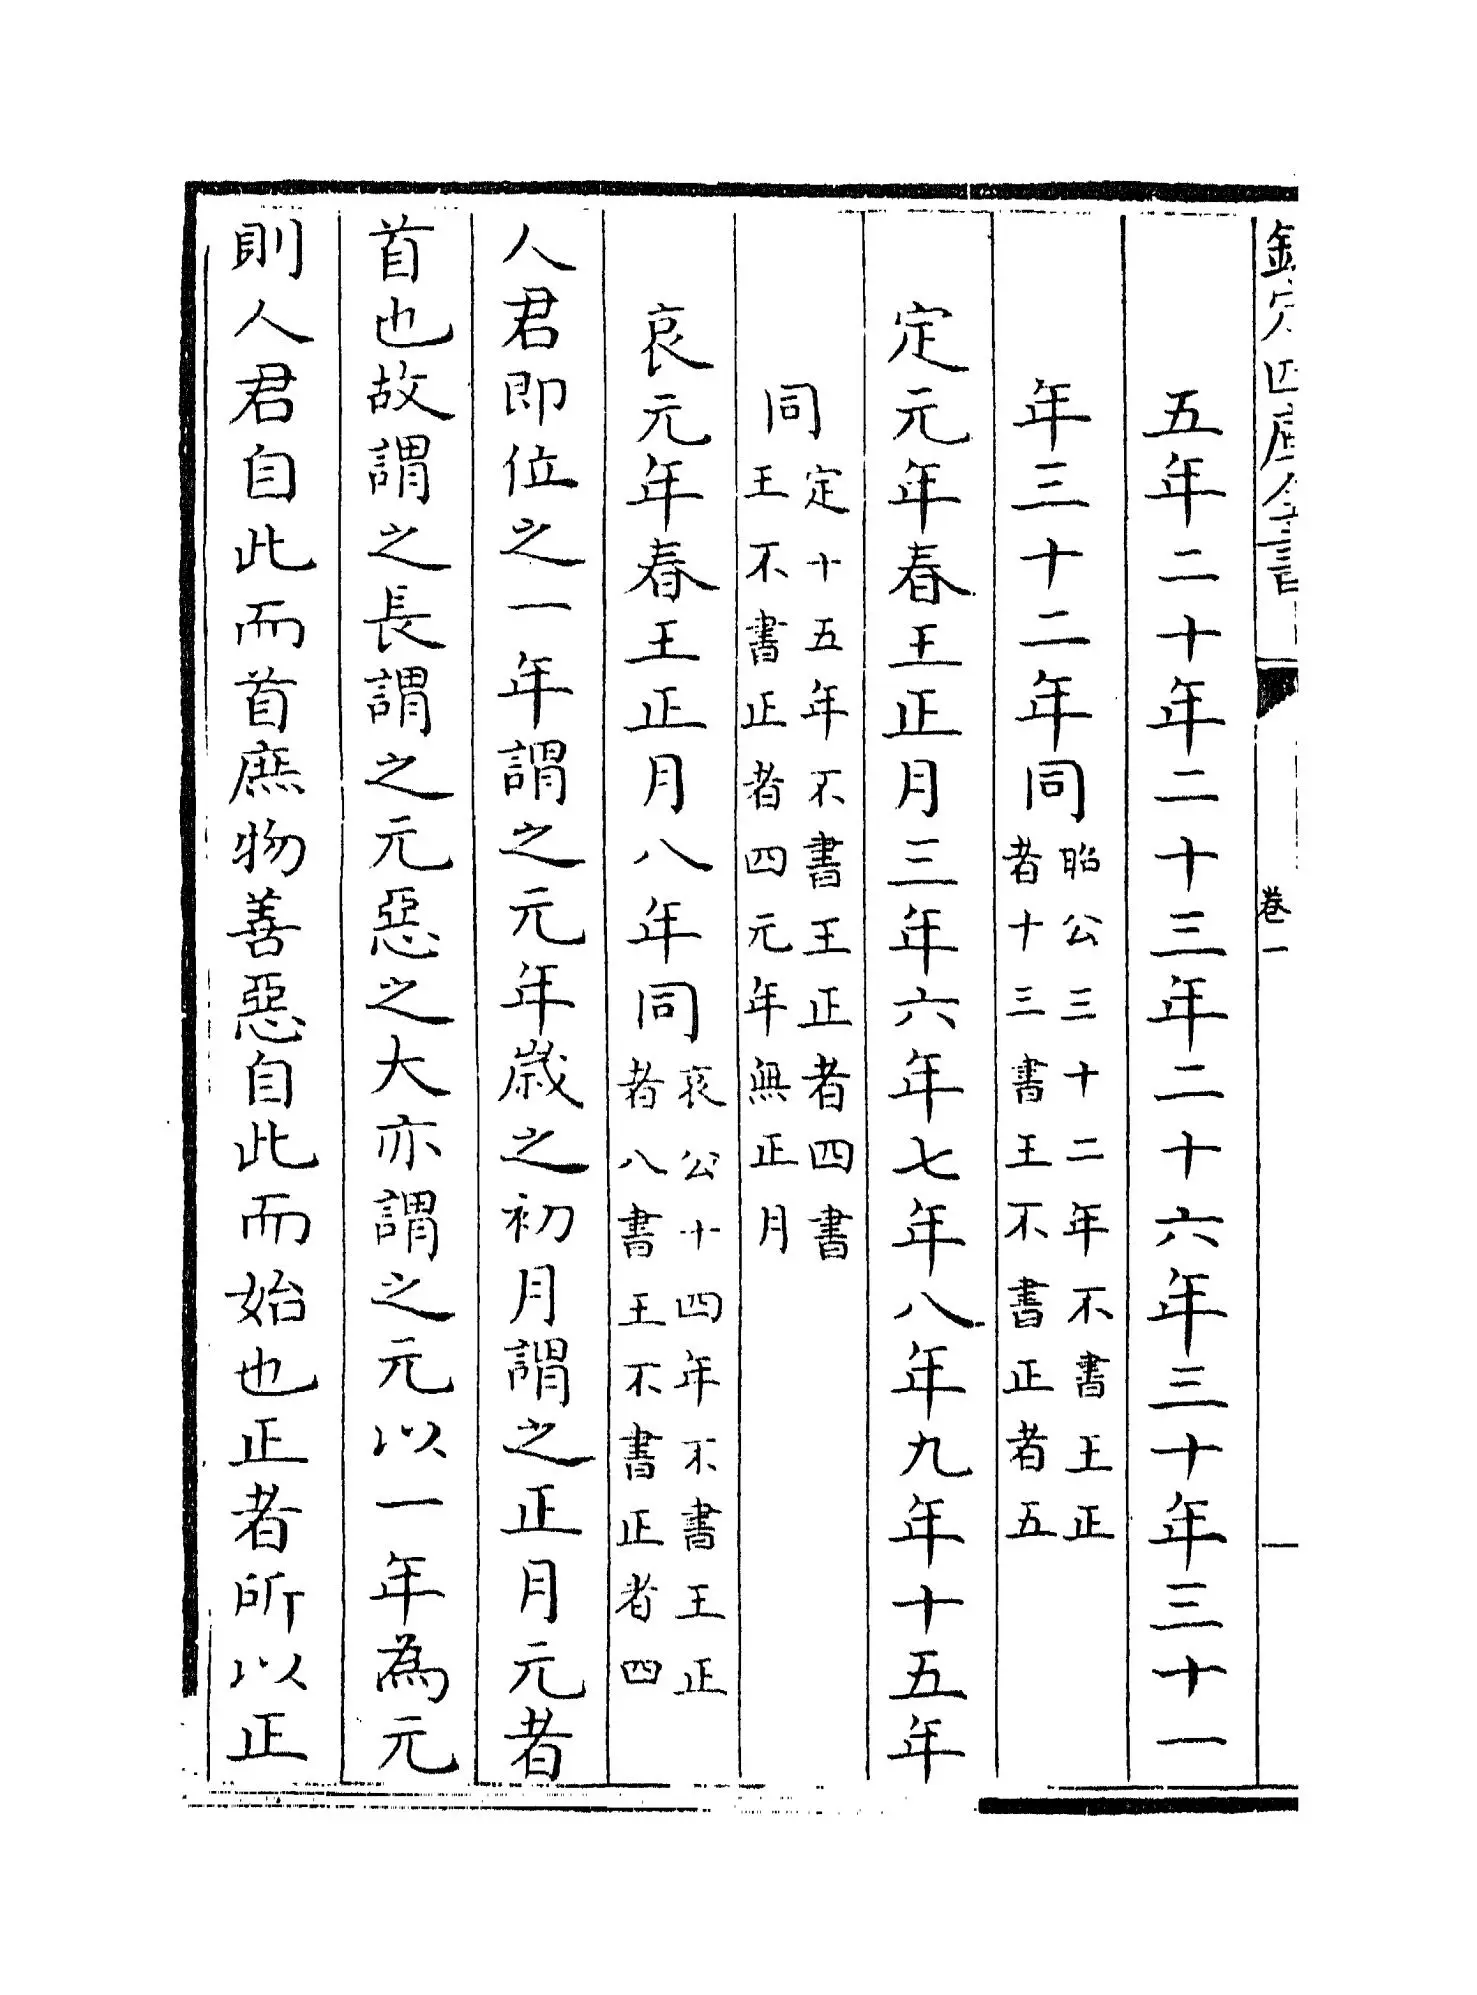 欽定四庫全書
卷一
五年二十年二十三年二十六年三十年三十一
年三十二年同昭公三十二年不書王正
者十三書王不書正者五
定元年春王正月三年六年七年八年九年十五年
同定十五年不書王正者四書
王不書正者四元年無正月
哀元年春王正月八年同哀公十四年不書王正
者八書王不書正者四
人君即位之一年謂之元年歲之初月謂之正月元者
首也故謂之長謂之元惡之大亦謂之元以一年為元
則人君自此而首庶物善惡自此而始也正者所以正